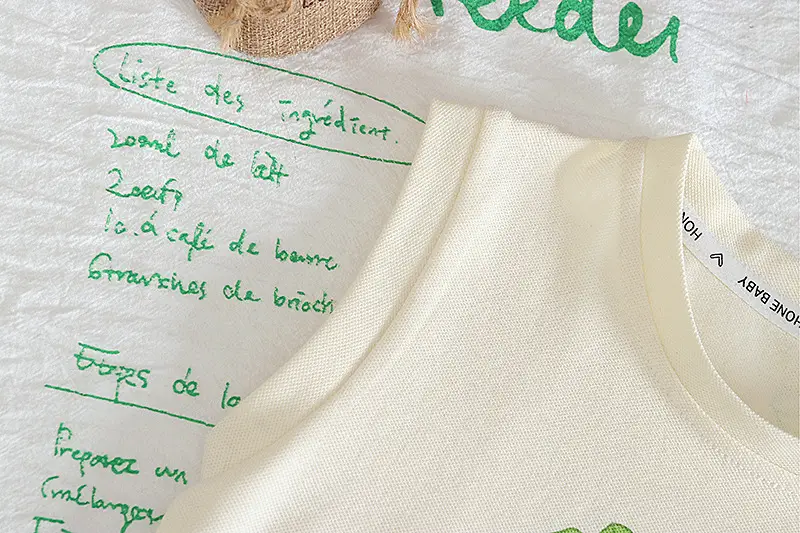 Liste des ingrédient.
200ml de lait
2 oeufs
1c.à café de beurre
6 tranches de brioch
Etapes de la
Préparez un
(mélanger
HON
HONE BABY